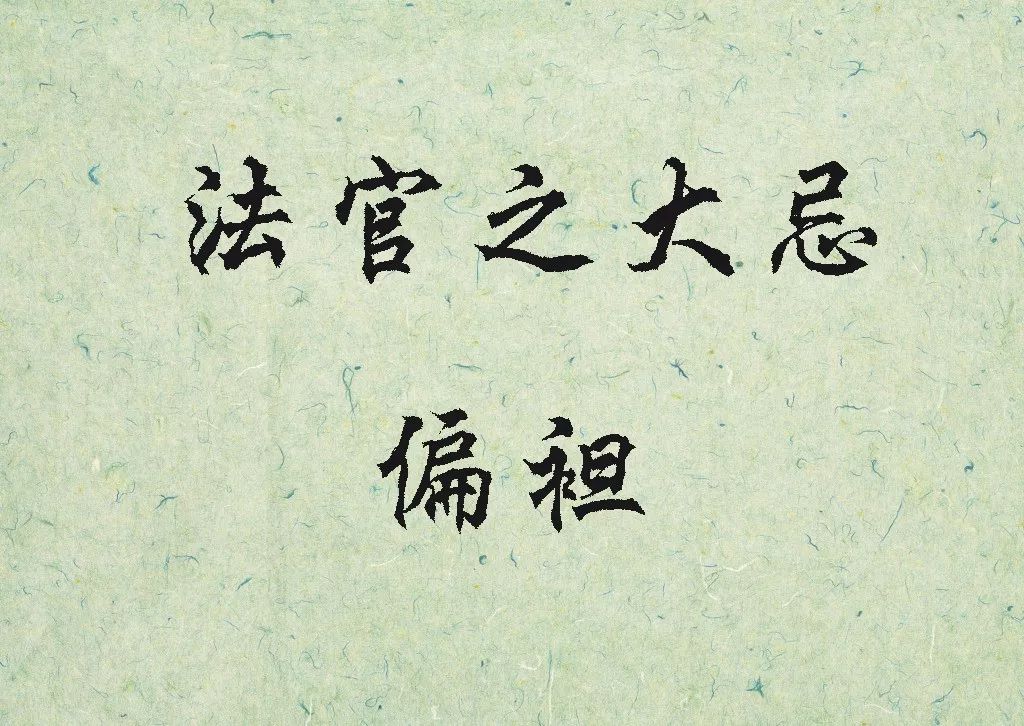 法官之大忌
偏袒